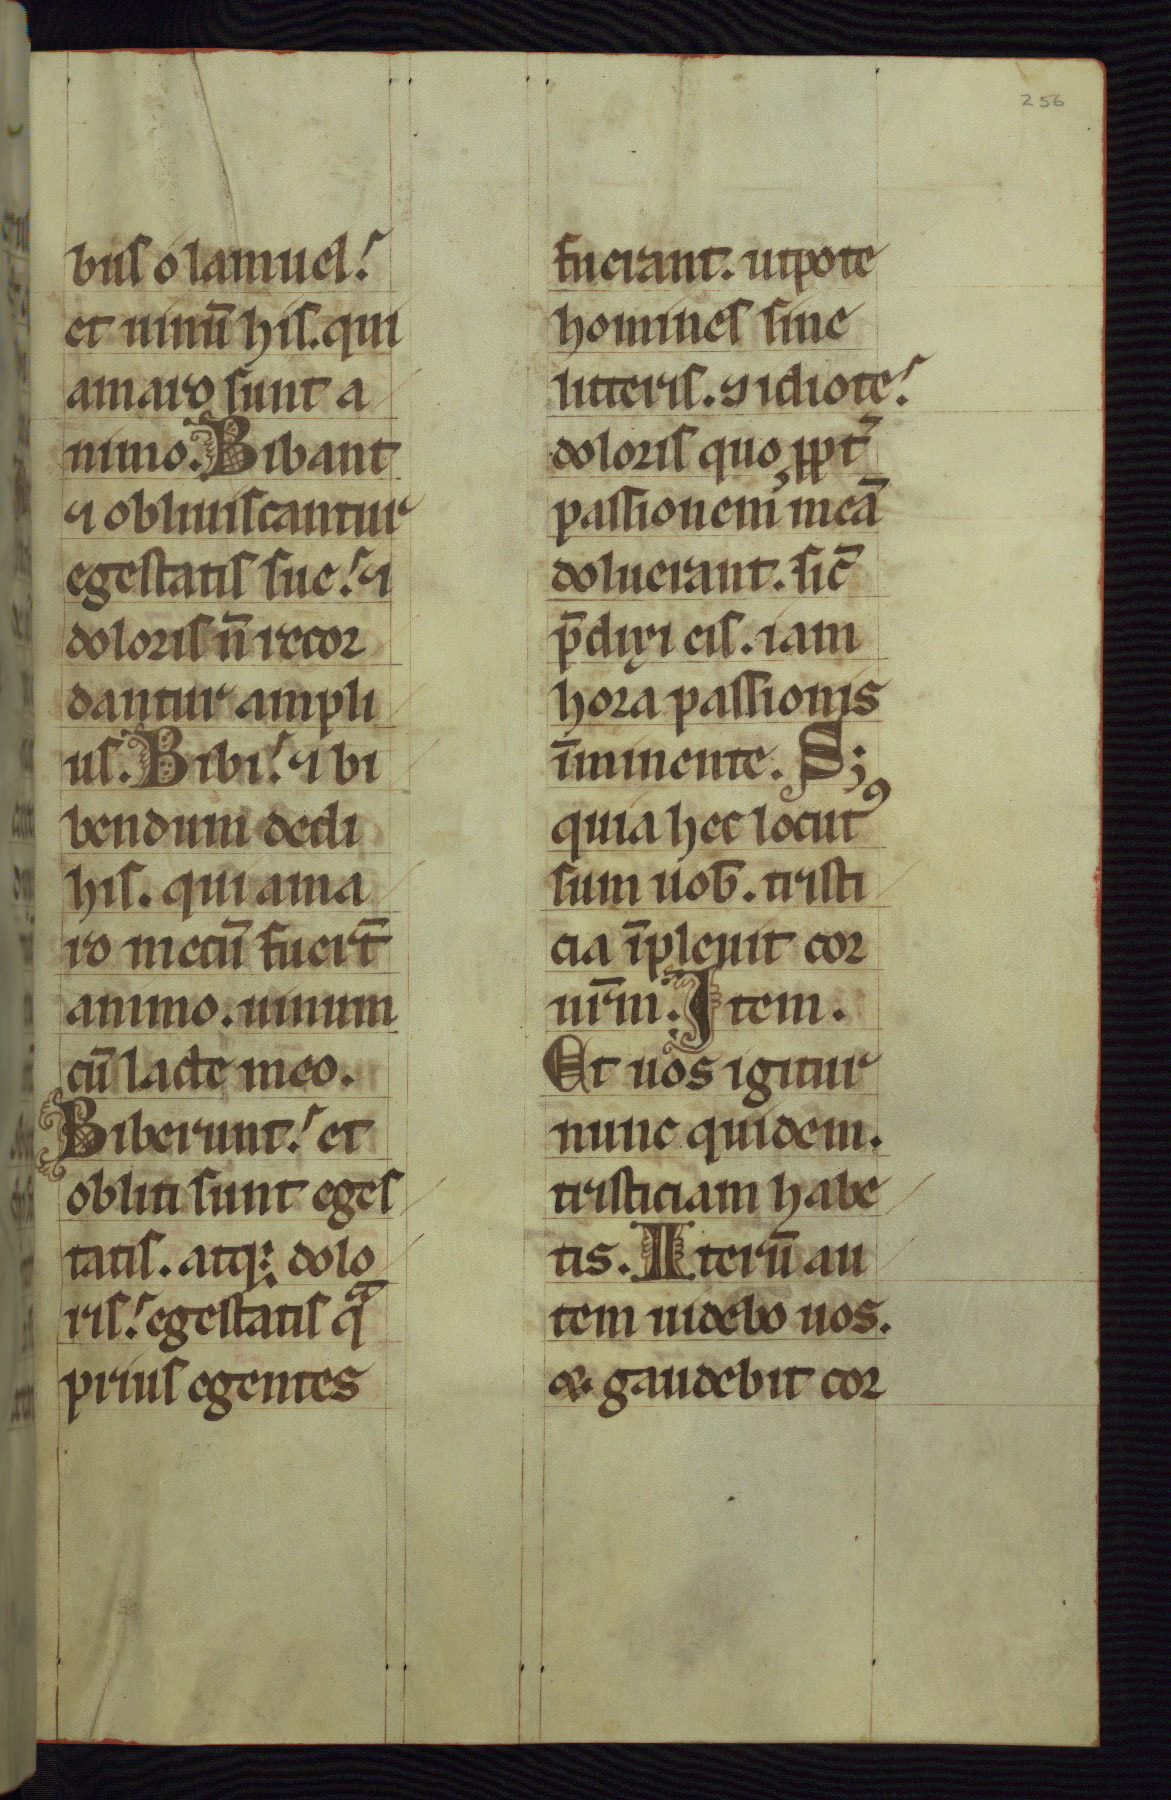 256
bus o lamuel.
et uinū his. qui
amaro sunt a
nimo. Bibant
⁊ obliuiscantur
egestatis sue. ⁊
doloris n̄ recor
dantur ampli
us. Bibi. ⁊ bi
bendum dedi
his. qui ama
ro mecū fuert̄
animo. uinum
cū lacte meo.
Biberunt. et
obliti sunt eges
tatis. atqꝫ dolo
ris. egestatis qͣ
prius egentes
fuerant. utpote
homines sine
litteris. ⁊ idiote.
doloris quo ꝓpt̄
passionem meā
doluerant. sic̄
p̄dixi eis. iam
hora passionis
īminente. Sꝫ
quia hec locutꝰ
sum uob̄. tristi
cia īpleuit cor
ur̄m. Item.
Et uos igitur
nunc quidem.
tristiciam habe
tis. Iterū au
tem uidebo uos.
& gaudebit cor